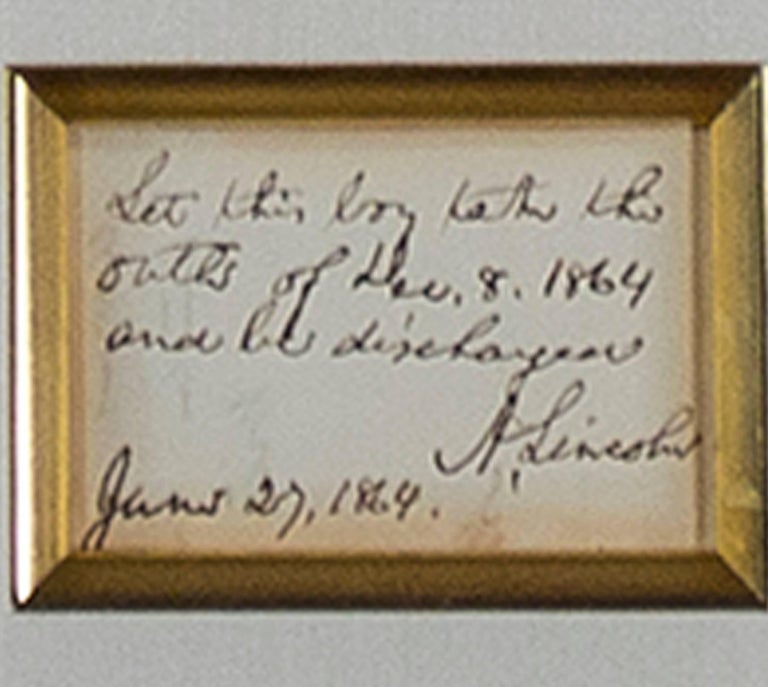 Let this boy take the
oaths of Dec. 8. 1864
and be discharged
A. Lincoln
June 27, 1864.